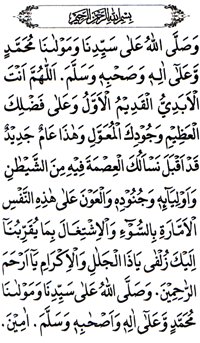 بِسْمِ اللهِ الرَّحْمٰنِ الرَّحِيْمِ
وَصَلَّى اللهُ عَلٰى سَيِّدِنَا وَمَوْلٰىنَا مُحَمَّدٍ
وَّعَلٰى اٰلِهٖ وَصَحْبِهٖ وَسَلَّمَ. اَللّٰهُمَّ اَنْتَ
الْاَبَدِيُّ الْقَدِيْمُ الْاَوَّلُ وَعَلٰى فَضْلِكَ
الْعَظِيْمِ وَجُوْدِكَ الْمُعَوَّلُ وَهٰذَا عَامٌ جَدِيْدٌ
قَدْ اَقْبَلَ نَسْاَلُكَ الْعِصْمَةَ فِيْهِ مِنَ الشَّيْطٰنِ
وَاَوْلِيَآئِهٖ وَجُنُوْدِهٖ وَالْعَوْنَ عَلٰى هٰذِهِ النَّفْسِ
الْاَمَّارَةِ بِالسُّوْٓءِ وَالْاِشْتِغَالَ بِمَا يُقَرِّبُنَآ
اِلَيْكَ زُلْفٰى يَاذَا الْجَلٰلِ وَالْاِكْرَامِ يَآاَرْحَمَ
الرّٰحِمِيْنَ. وَصَلَّى اللهُ عَلٰى سَيِّدِنَا وَمَوْلٰىنَا
مُحَمَّدٍ وَّعَلٰى اٰلِهٖ وَاَصْحٰبِهٖ وَسَلَّمَ. اٰمِيْنَ.